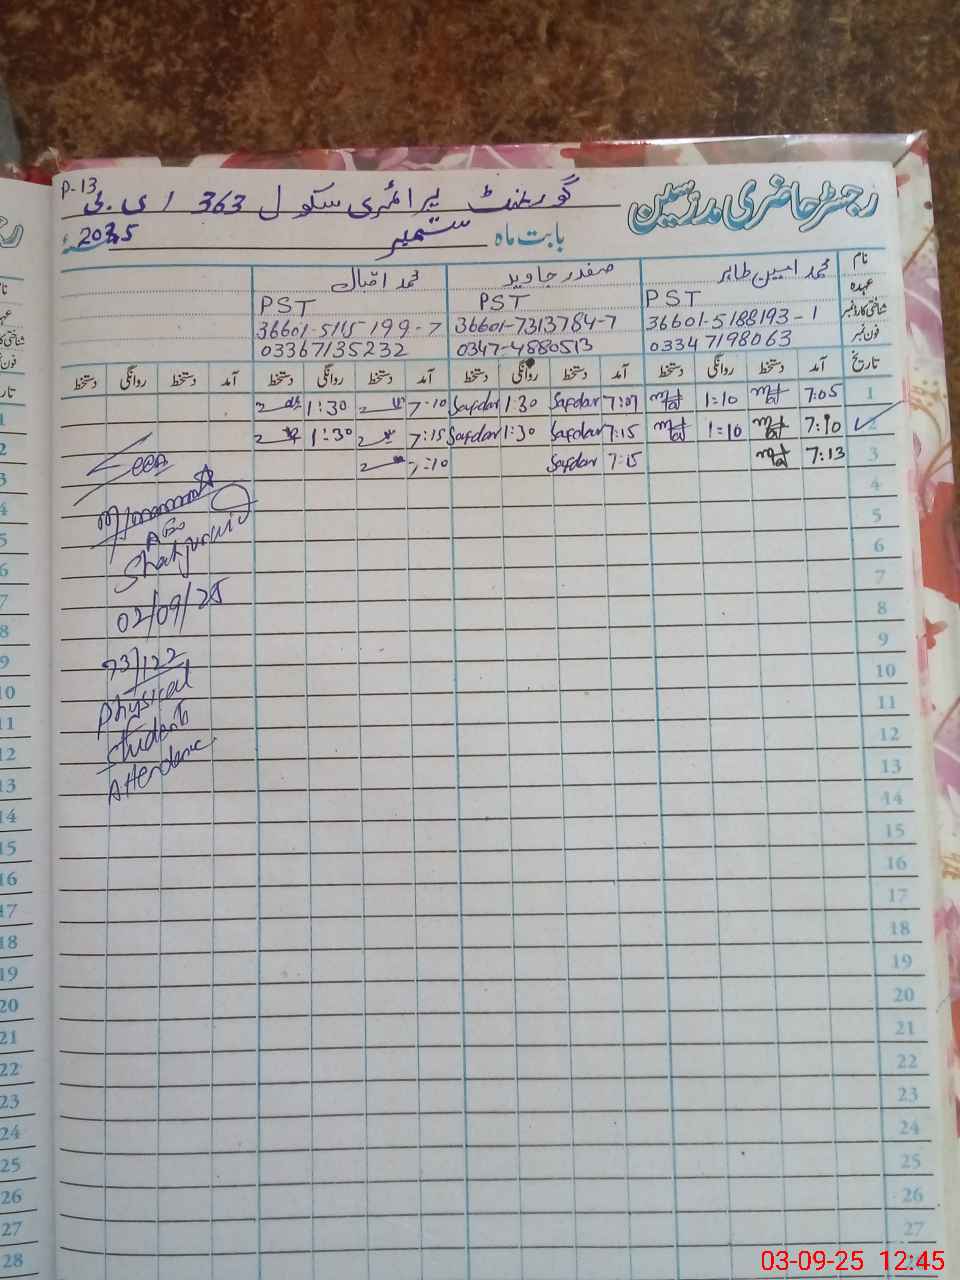 P-13
رجسٹر حاضری مدرسین
گورنمنٹ پرائمری سکول 363 / ای.بی
بابت ماہ ستمبر 2025
نام محمد امین طاہر صفدر جاوید محمد اقبال
عہدہ PST PST PST
شناختی کارڈ نمبر 36601-5188193-1 36601-7313784-7 36601-5115199-7
فون نمبر 03347198063 0347-4880513 03367135232
تاریخ آمد دستخط روانگی دستخط آمد دستخط روانگی دستخط آمد دستخط روانگی دستخط آمد دستخط روانگی دستخط
1 7:05 1:10 7:07 Safdar 1:30 Safdar 7:10 1:30
2 7:10 1:10 7:15 Safdar 1:30 Safdar 7:15 1:30
3 7:13 7:15 Safdar 7:10
4
5
6
7
8
9
10
11
12
13
14
15
16
17
18
19
20
21
22
23
24
25
26
27
AEO
02/09/25
73/122
Physical
students
Attendance
1
2
3
4
5
6
7
8
9
10
11
12
13
14
15
16
17
18
19
20
21
22
23
24
25
26
27
28
03-09-25 12:45